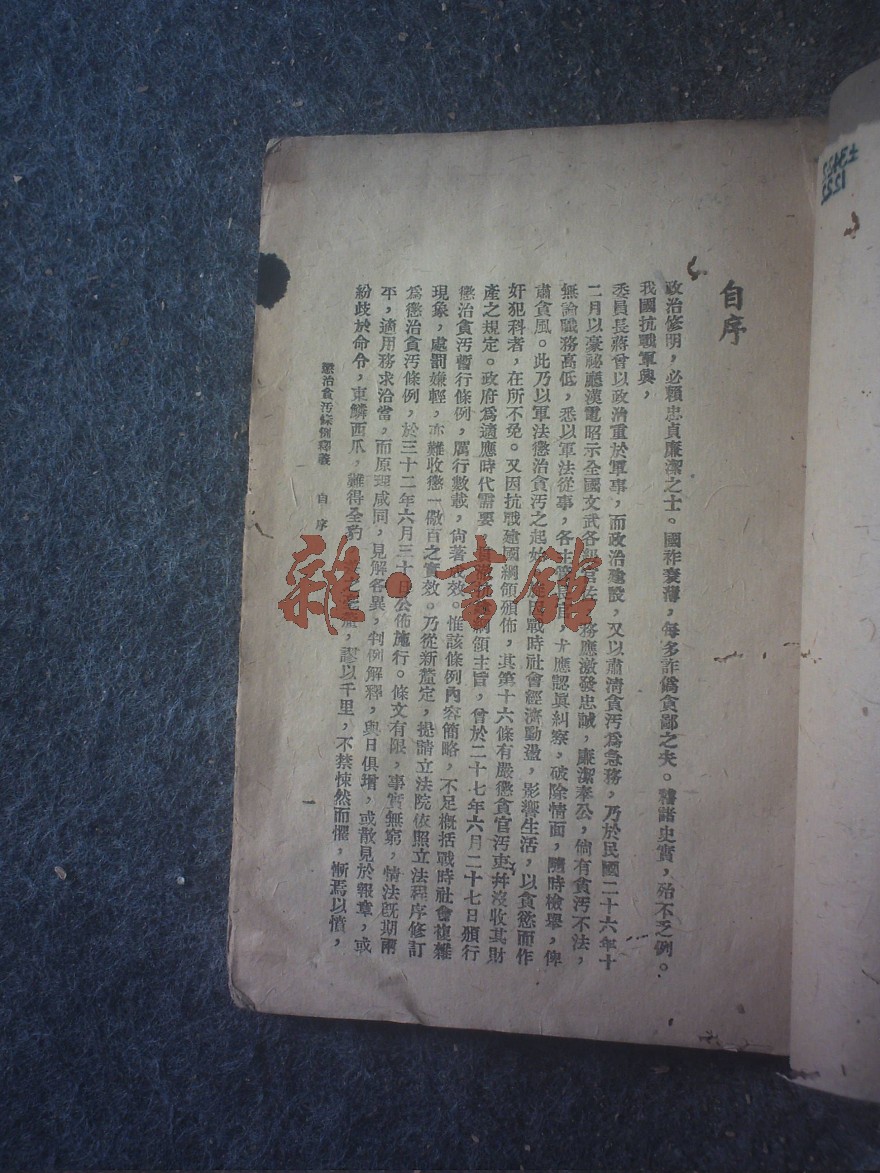 自序
政治修明，必賴忠貞廉潔之士。國祚衰薄，每多詐僞貪鄙之夫。稽諸史實，殆不乏例。
我國抗戰軍興，
委員長蔣曾以政治重於軍事，而政治建設，又以肅清貪汚爲急務，乃於民國二十六年十
二月以豪祕廳漢電昭示全國文武各級官佐，務應激發忠誠，廉潔奉公，倘有貪汚不法，
無論職務高低，悉以軍法從事，各主官，尤應認眞糾察，破除情面，隨時檢舉，俾
肅貪風。此乃以軍法懲治貪汚之起始。戰時社會經濟動盪，影響生活，以貪慾而作
奸犯科者，在所不免。又因抗戰建國綱領頒佈，其第十六條有嚴懲貪官汚吏幷沒收其財
產之規定。政府爲適應時代需要，綱領主旨，曾於二十七年六月二十七日頒行
懲治貪汚暫行條例，厲行數載，尙著成效。惟該條例內容簡略，不足概括戰時社會複雜
現象，處罰嫌輕，亦難收懲一儆百之實效。乃從新釐定，提請立法院依照立法程序修訂
爲懲治貪汚條例，於三十二年六月三十日公佈施行。條文有限，事實無窮，情法旣期兩
平，適用務求洽當，而原理咸同，見解各異，判例解釋，與日俱增，或散見於報章，或
紛歧於命令，東鱗西爪，難得全豹，謬以千里，不禁悚然而懼，慚焉以憤，
懲治貪汚條例釋義　自序
一
雜·書館